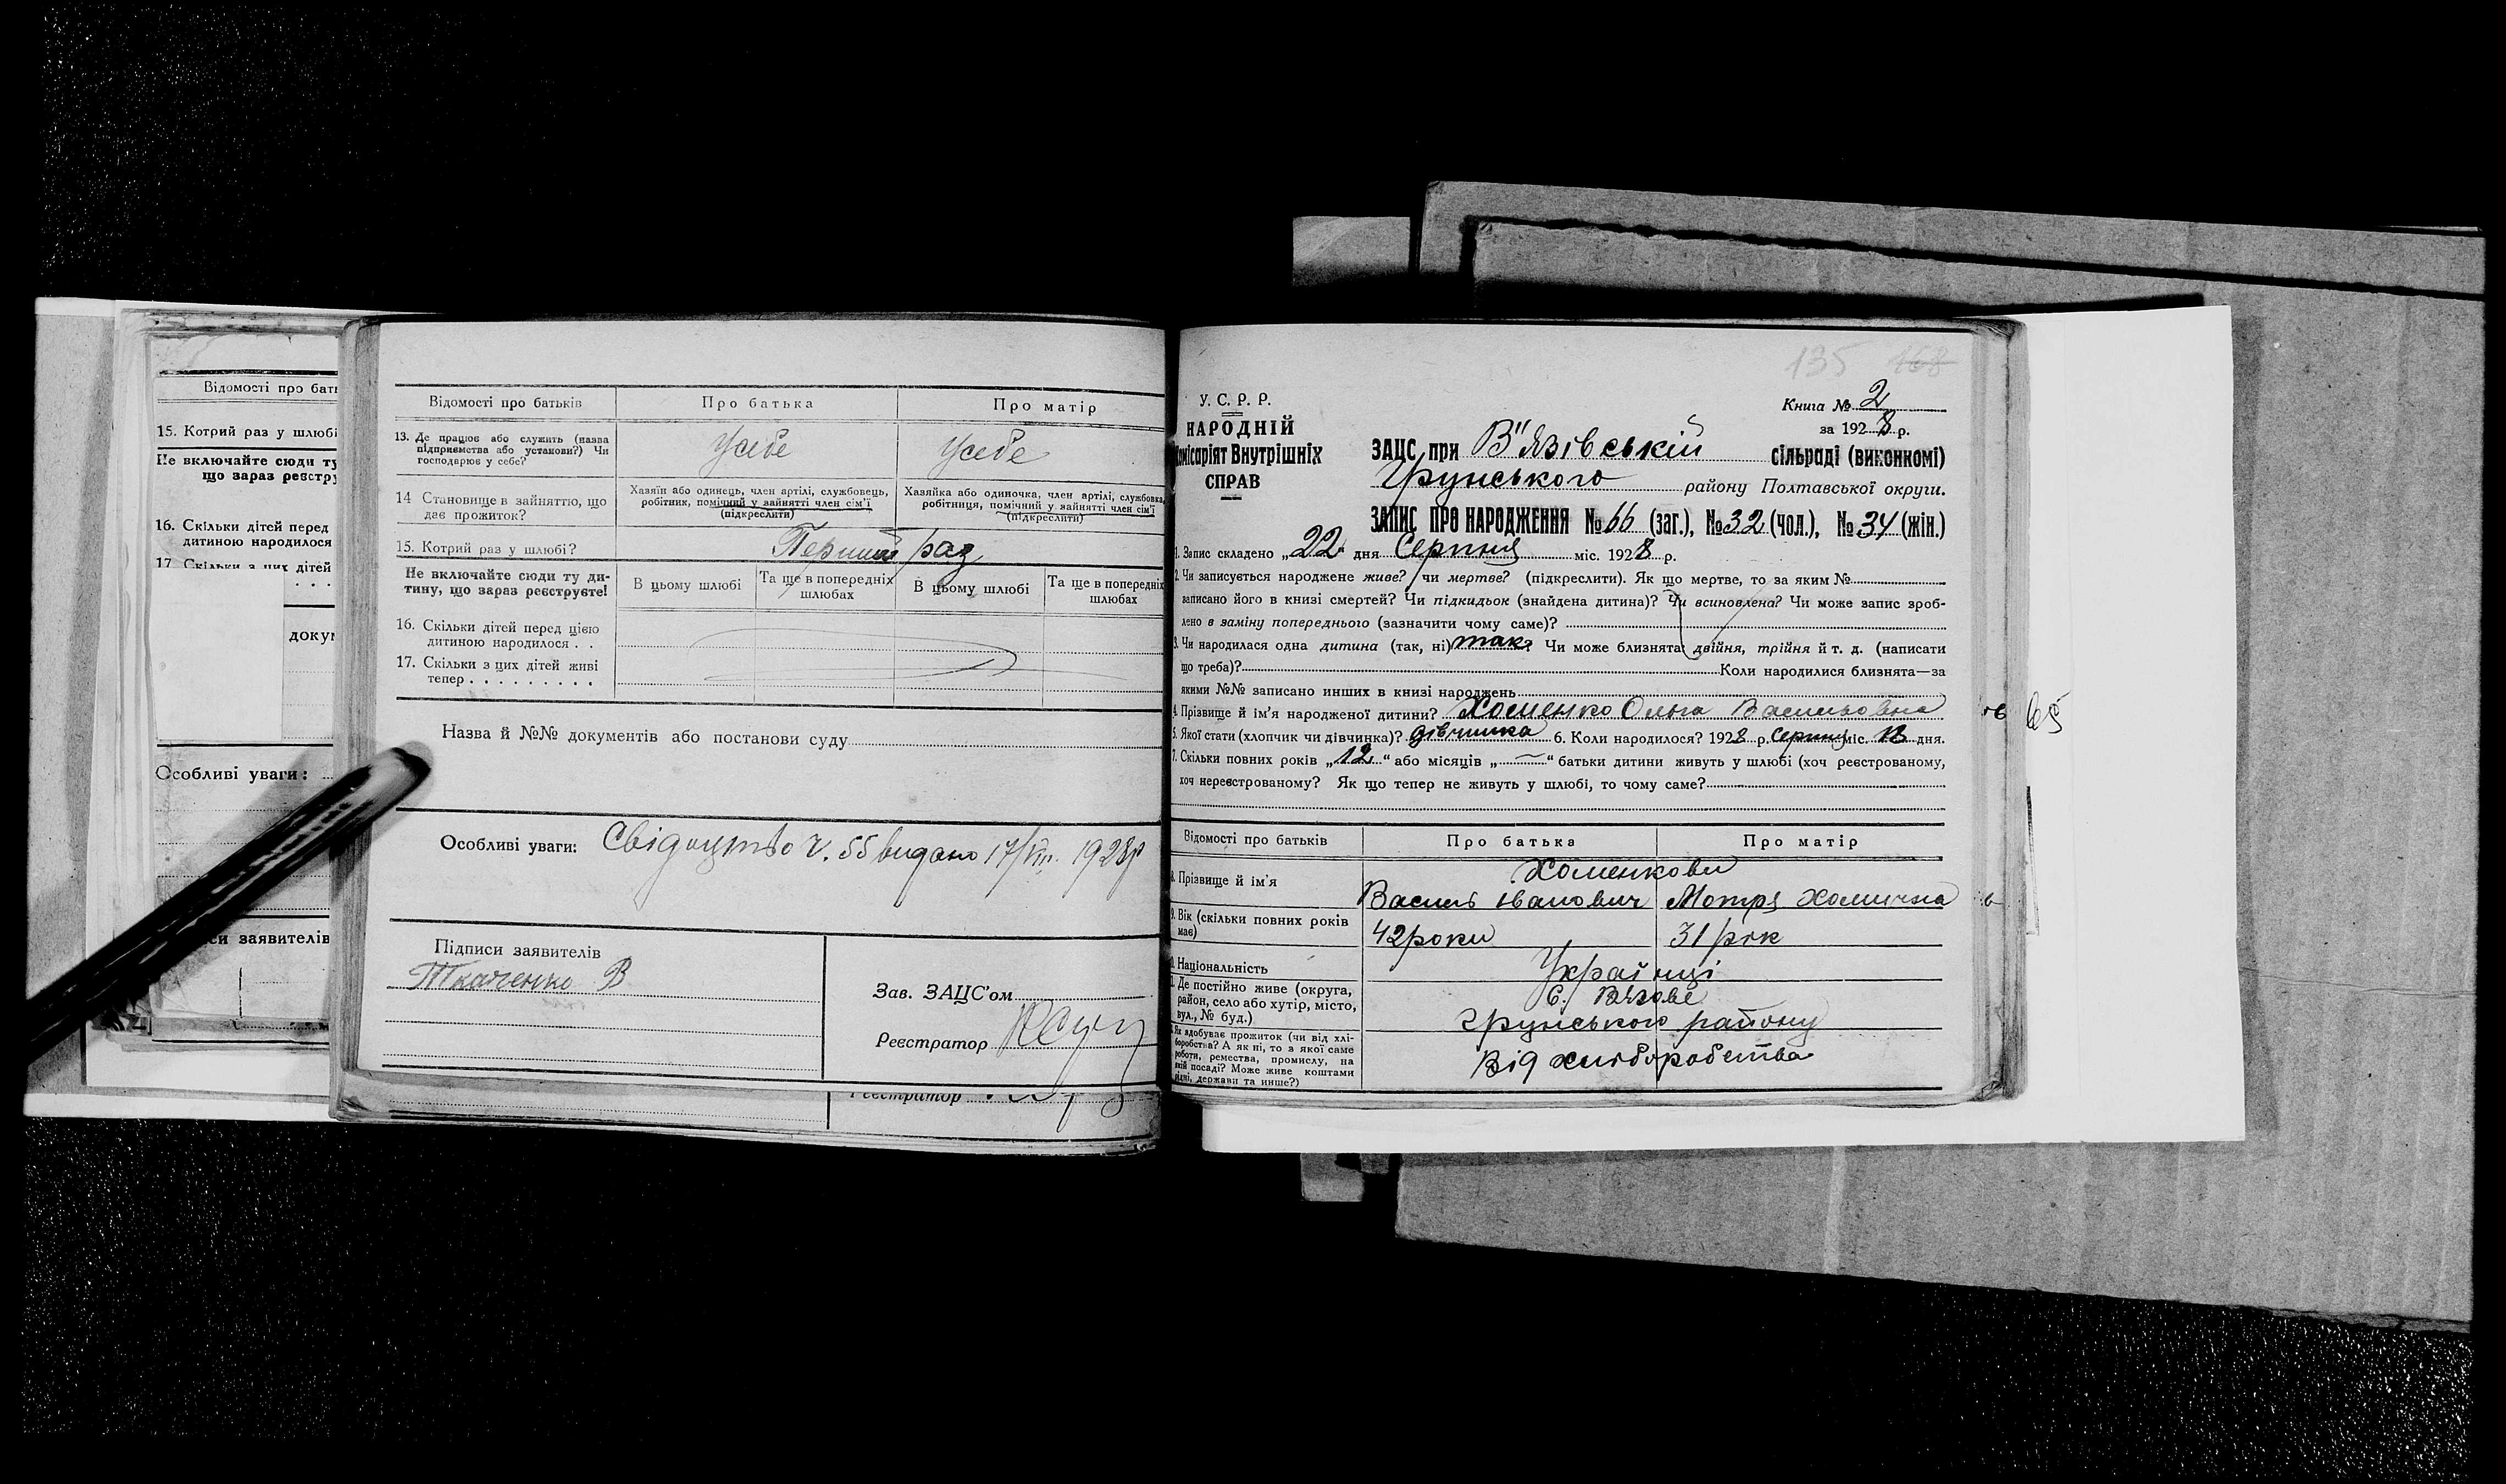 Відомості про
15. Котрий раз у шлюбі
Не включайте сюди ту
що зараз реєстру
16. Скільки дітей перед
дитиною народилося
17 Скільки з цих дітей
Особливі уваги:
заявителів
Відомості про батьків
Про батька
Про матір
13. Де працює або служить (назва
підприємства або установи?) Чи
господарює у себе?
Усебе
Усебе
14 Становище в зайняттю, що
дає прожиток?
Хазяїн або одинець, член артілі, службовець,
робітник, помічний у зайнятті член сім'ї
(підкреслити)
Хазяйка або одиночка, член артілі, службовка,
робітниця, помічний у зайнятті член сім'ї
(підкреслити)
15. Котрий раз у шлюбі?
Перший раз
Не включайте сюди ту ди-
тину, що зараз реєструєте!
В цьому шлюбі
Та ще в попередніх
шлюбах
В цьому шлюбі
Та ще в попередніх
шлюбах
16. Скільки дітей перед цією
дитиною народилося . .
17. Скільки з цих дітей живі
тепер . . . . . . . . .
Назва й №№ документів або постанови суду
Особливі уваги: Свідоцтво ч. 55 видано 17/VIII. 1928р
Підписи заявителів
Ткаченко В
Зав. ЗАЦС'ом
Реєстратор
Реєстратор
135 168
У. С. Р. Р.
НАРОДНІЙ
Комісаріят Внутрішніх
СПРАВ
Книга № 2
за 1928 р.
ЗАЦС при В"язівській сільраді (виконкомі)
Грунського району Полтавської округи.
ЗАПИС ПРО НАРОДЖЕННЯ № 66 (заг.), № 32 (чол.), № 34 (жін.)
1. Запис складено „22" дня Серпня міс. 1928 р.
2. Чи записується народжене живе? чи мертве? (підкреслити). Як що мертве, то за яким №
записано його в книзі смертей? Чи підкидьок (знайдена дитина)? Чи всиновлена? Чи може запис зроб-
лено в заміну попереднього (зазначити чому саме)?
3. Чи народилася одна дитина (так, ні) так? Чи може близнята: двійня, трійня й т. д. (написати
що треба)? Коли народилися близнята—за
якими №№ записано инших в книзі народжень
4. Прізвище й ім'я народженої дитини? Хоменко Ольга Васильовна
65
5. Якої стати (хлопчик чи дівчинка)? дівчинка 6. Коли народилося? 1928 р. Серпня міс. дня.
7. Скільки повних років „12" або місяців „—" батьки дитини живуть у шлюбі (хоч реєстрованому,
хоч нереєстрованому? Як що тепер не живуть у шлюбі, то чому саме?
Відомості про батьків
Про батька
Про матір
8. Прізвище й ім'я
Хоменкови
Василь Іванович
Мотря Хомична
9. Вік (скільки повних років
має)
42 роки
31 рік
10. Національність
Українці
11. Де постійно живе (округа,
район, село або хутір, місто,
вул., № буд.)
С. Вязове
Грунського району
12. Як здобуває прожиток (чи від хлі-
боробства? А як ні, то з якої саме
роботи, ремества, промислу, на
якій посаді? Може живе коштами
рідні, держави та инше?)
Від хліборобства